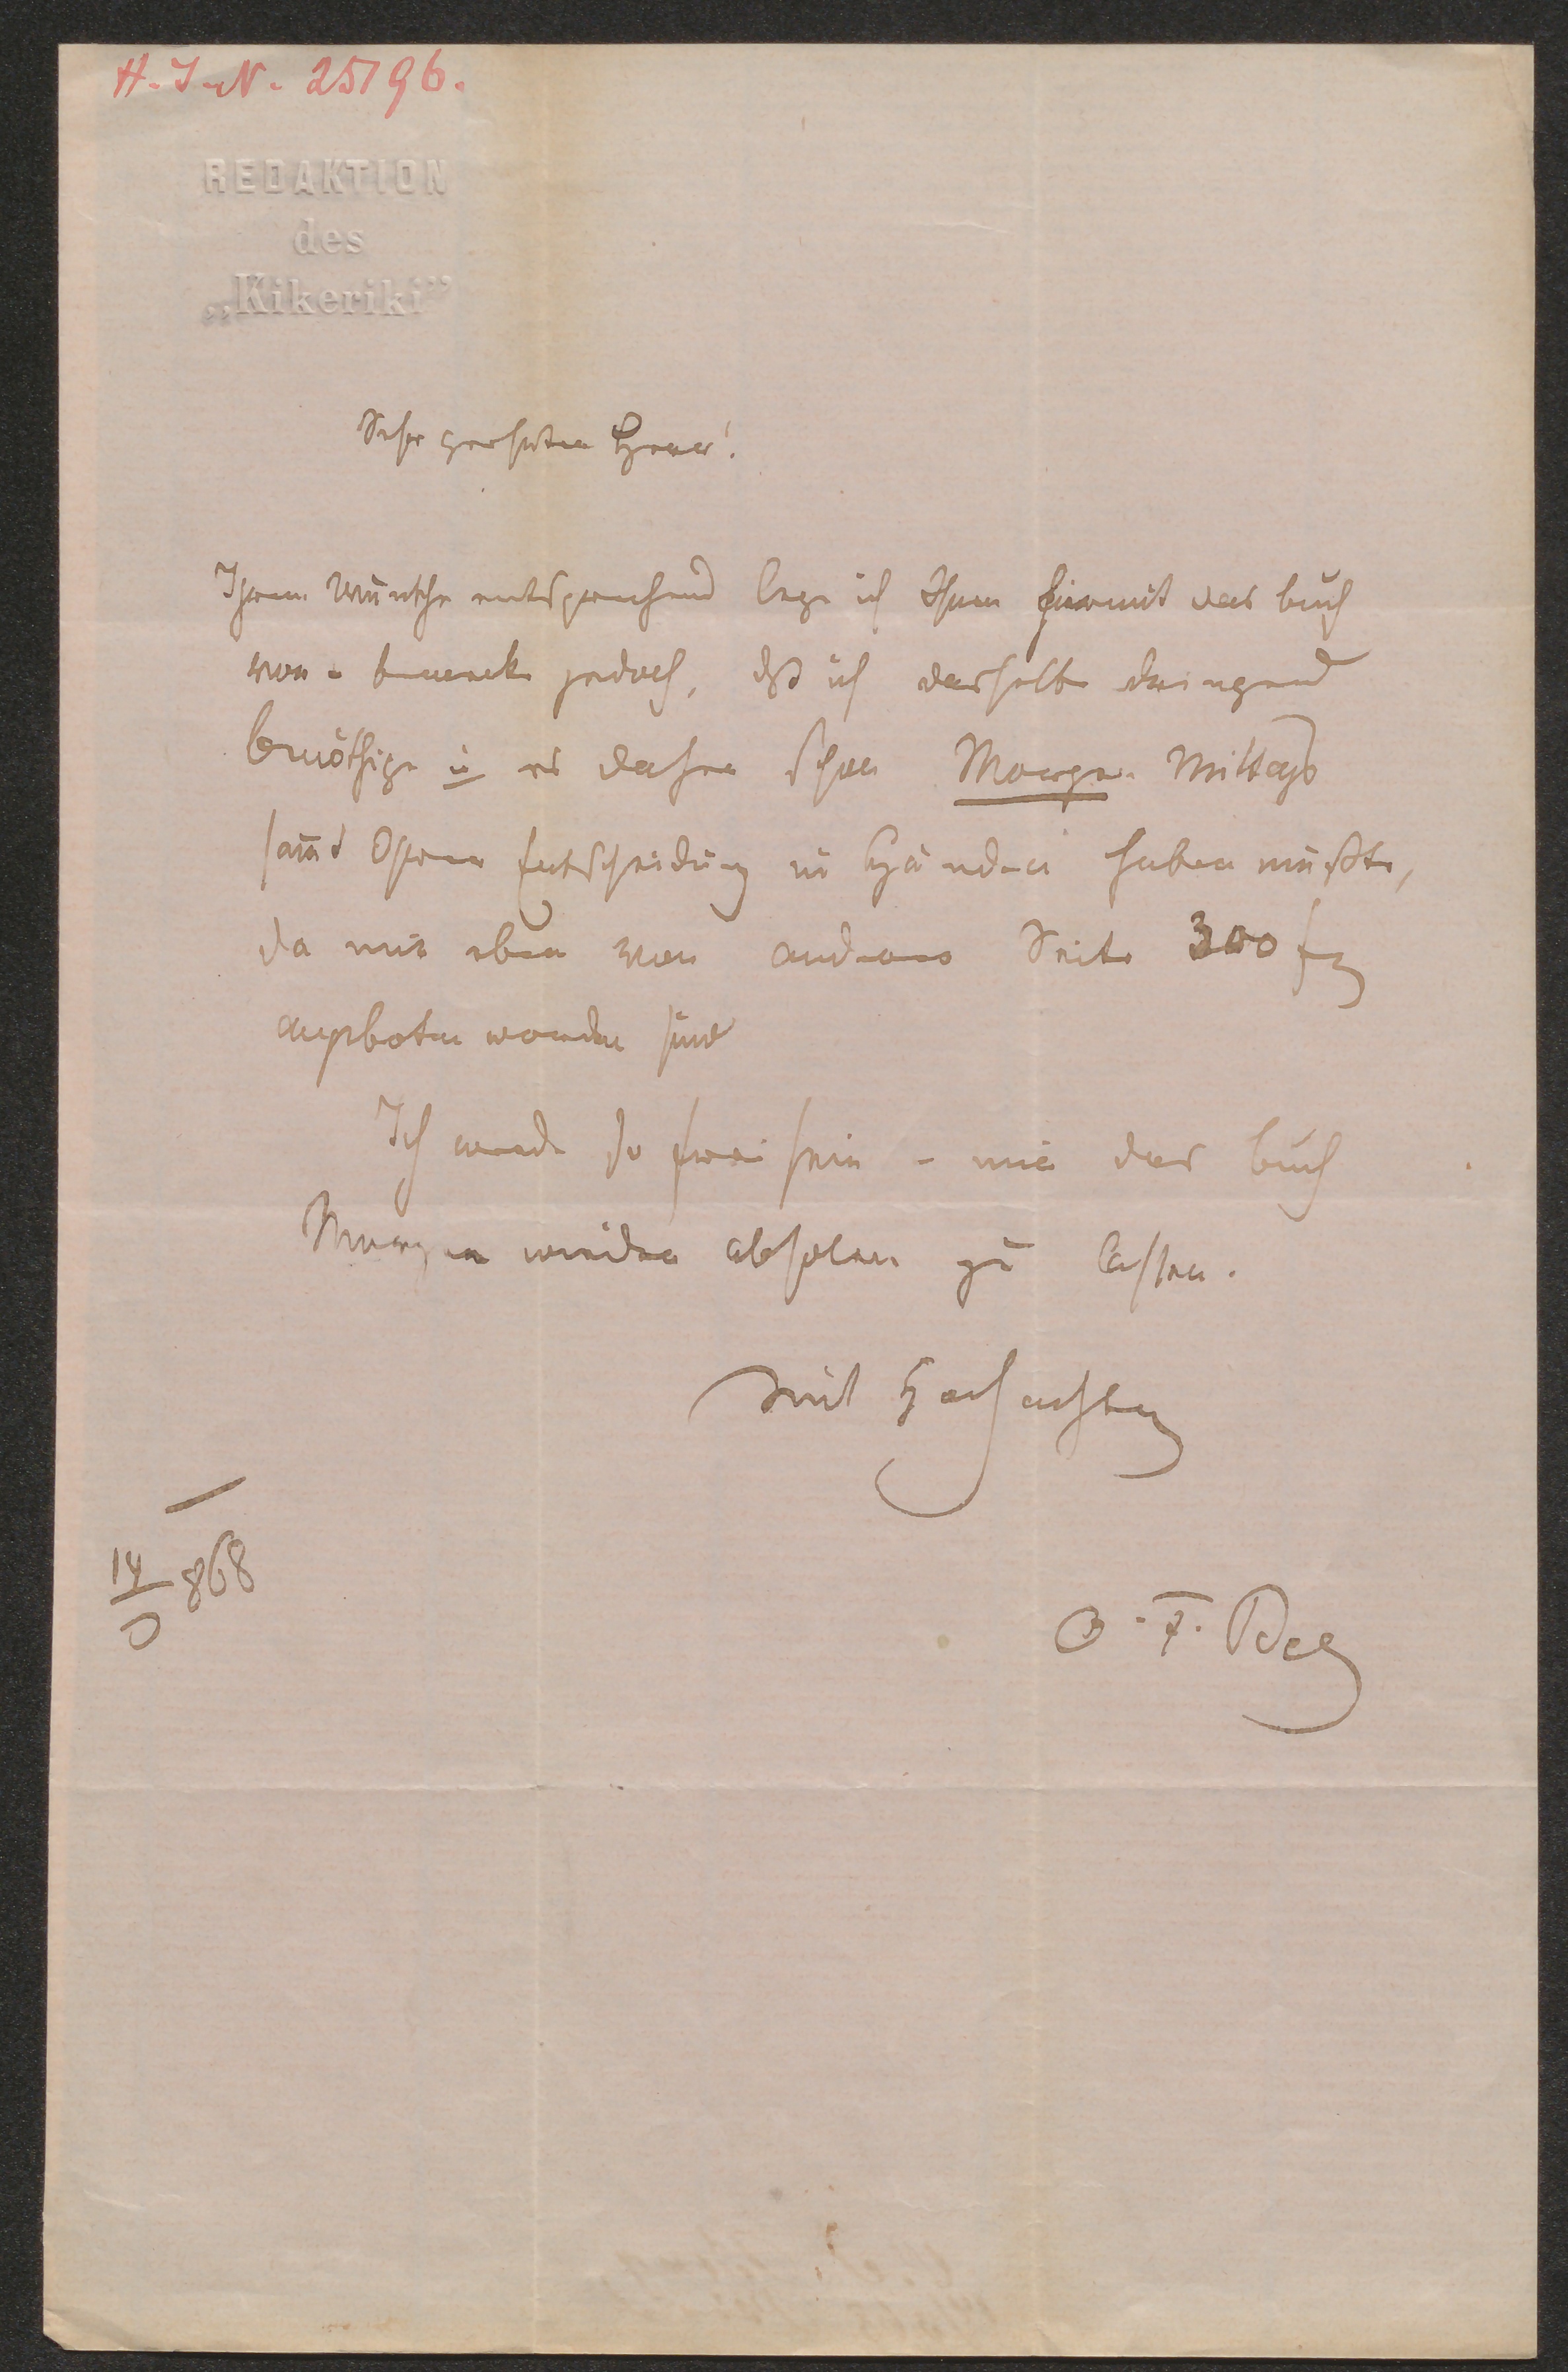 H. I. N. 25196.
REDAKTION
des
„Kikeriki”
Sehr geehrter Herr!
Ihrem Wunsche entsprechend lege ich Ihnen hiermit das Buch
vor - bemerke jedoch, dß ich dasselbe dringend
benöthige u es daher schon Morgen Mittags
sam̄t Ihrer Entscheidung in Händen haben müßte,
da mir eben von anderer Seite 300 f
angeboten worden sind
Ich werde so frei sein - mir das Buch
Morgen wieder abholen zu lassen.
Mit Hochachtung
14/ 868
O. F. Berg